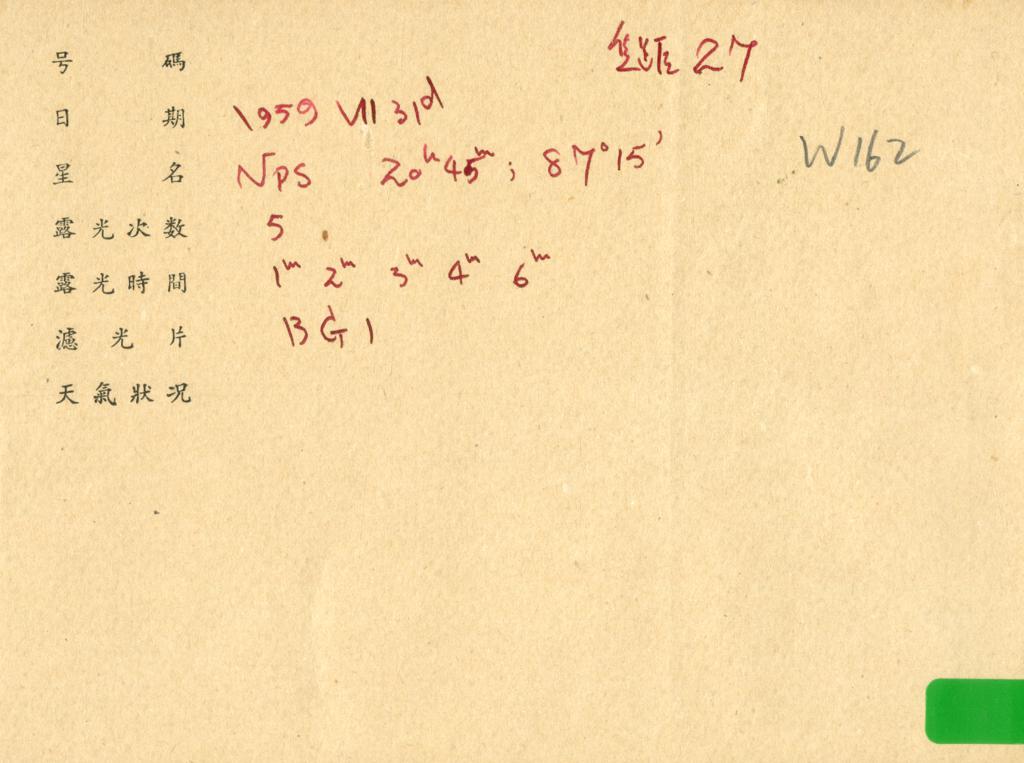 号碼 27
日期 1959 VII 31d
W162
星名 NPS 20h 45m; 87°15'
露光次数 5
露光時間 1m 2m 3m 4m 6m
濾光片 BG1
天氣狀况